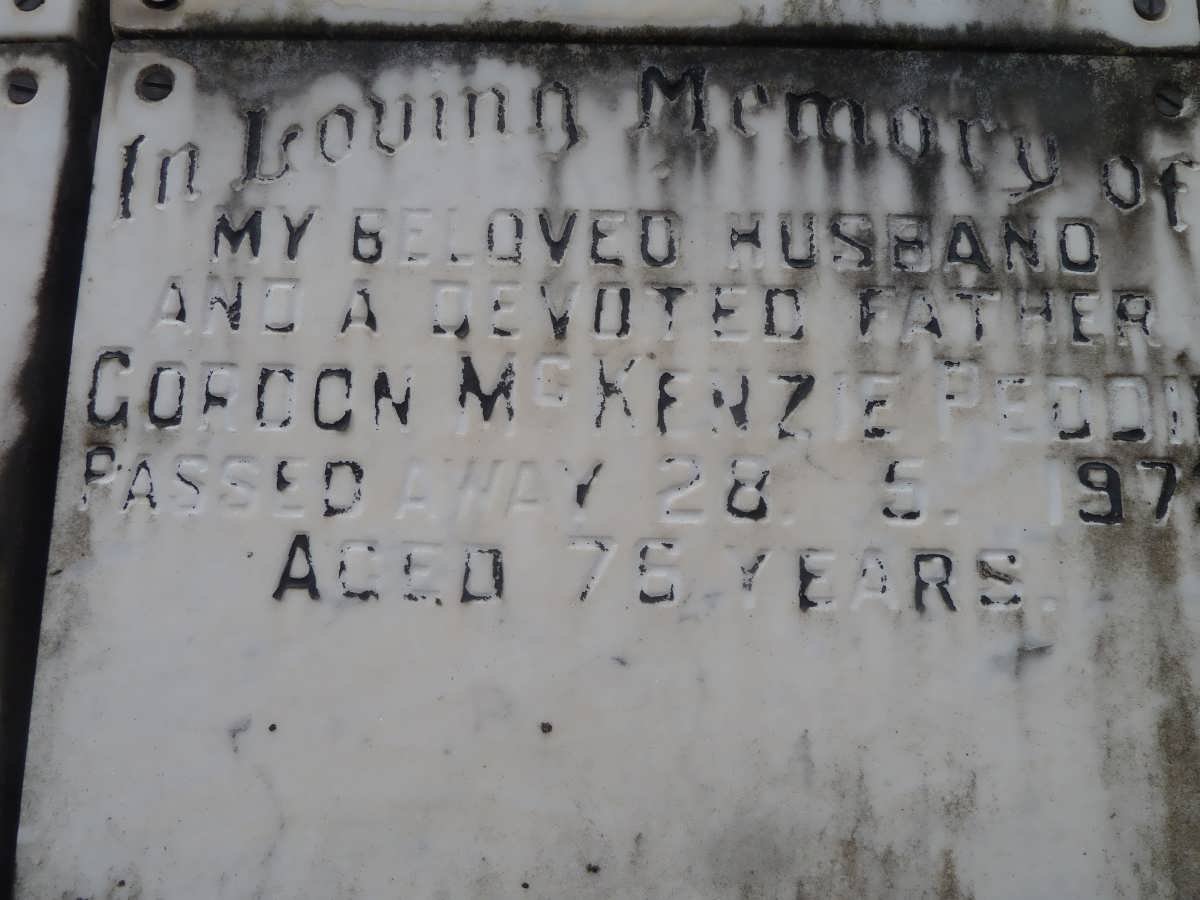 In Loving Memory of
MY BELOVED HUSBAND
AND A DEVOTED FATHER
GORDON McKENZIE PEDDI
PASSED AWAY 28. 5. 197
AGED 76 YEARS.